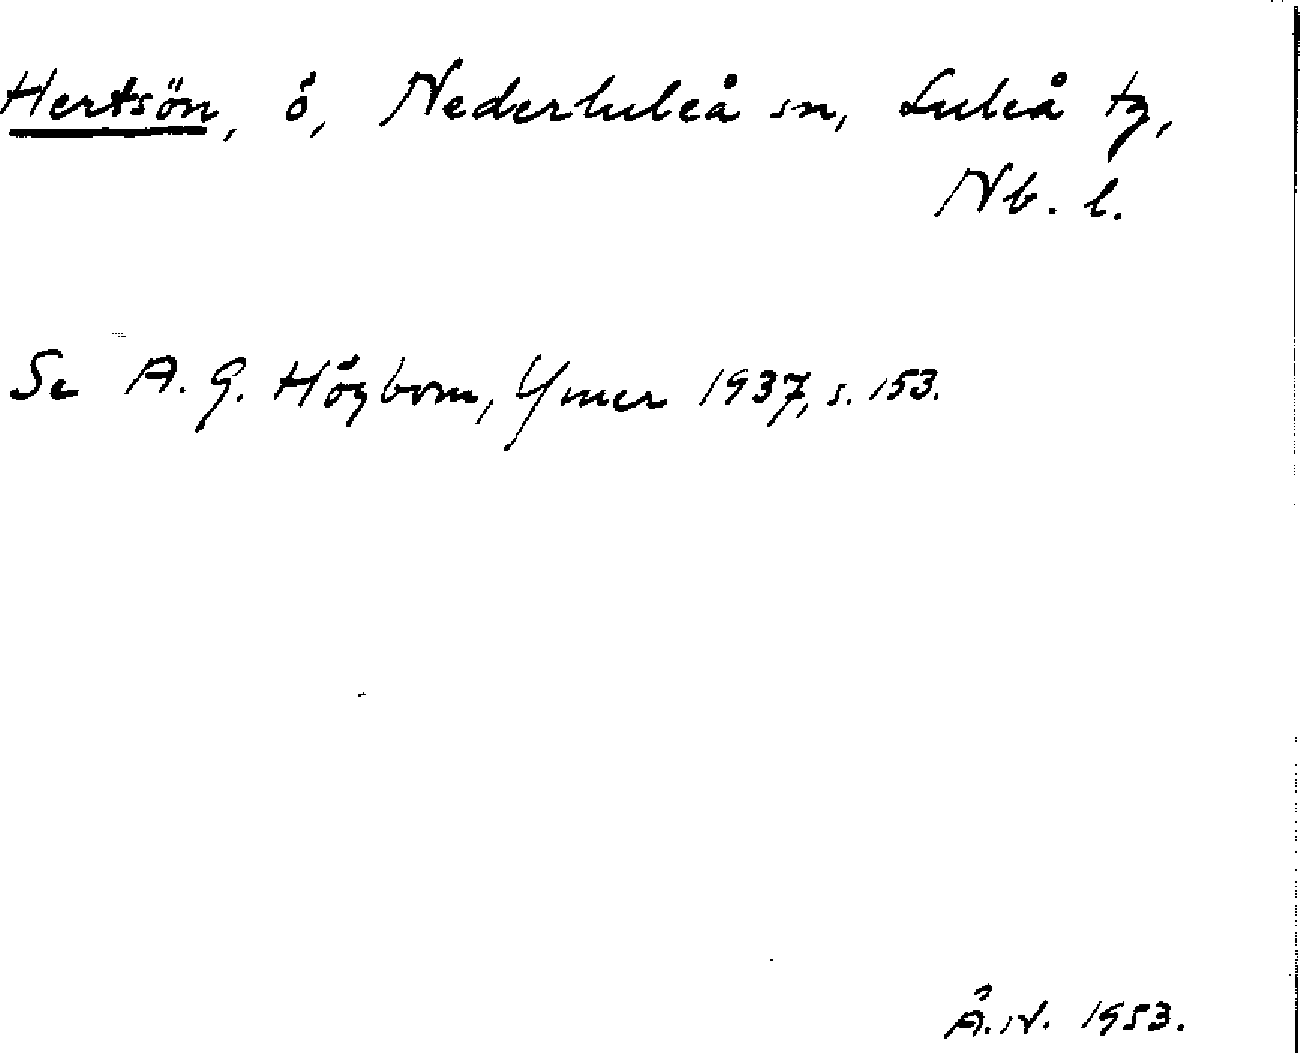 Hertsön, ö, Nederluleå sn, Luleå tg,
Nb. l.
Se A. G. Högbom, Ymer 1937, s. 153.
Å. N. 1953.